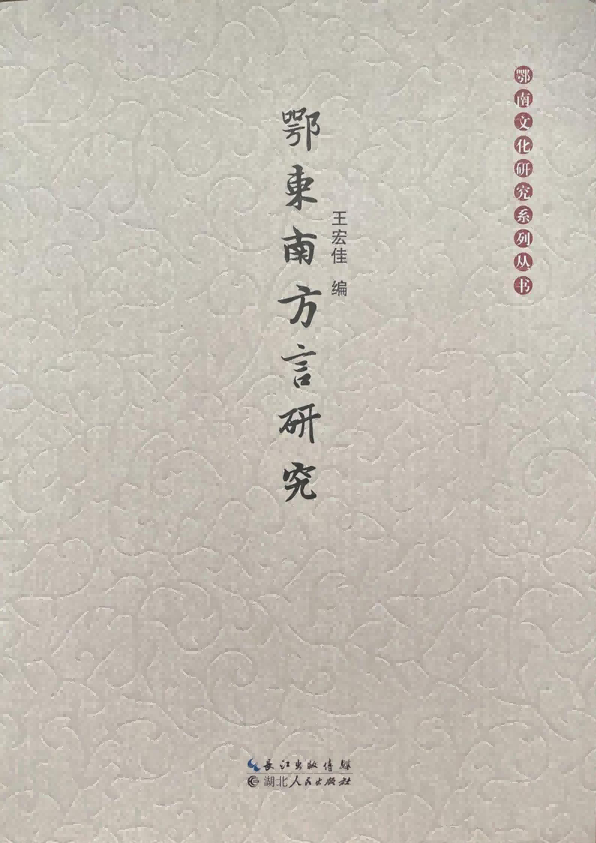 鄂南文化研究系列丛书
鄂東南方言研究
王宏佳 编
長江出版传媒
湖北人民出版社